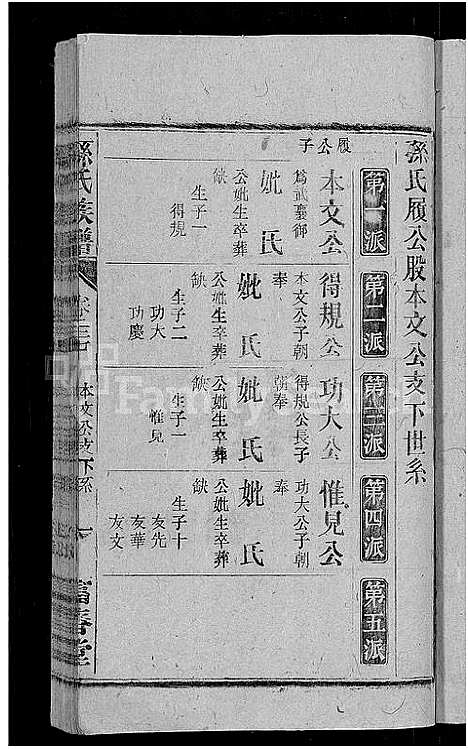 孫氏履公股本文公支下世系
第一派
第二派
第三派
第四派
第五派
履公子
本文公
爲武襄御
妣氏
公妣生卒葬
缺
生子一
得規
得規公
本文公子朝
奉
妣氏
公妣生卒葬
缺
生子二
功大
功慶
功大公
得規公長子
朝奉
妣氏
公妣生卒葬
缺
生子一
惟見
惟見公
功大公子朝
奉
妣氏
公妣生卒葬
缺
生子十
友先
友華
友文
孫氏族譜
本文公支下系
一
富春堂